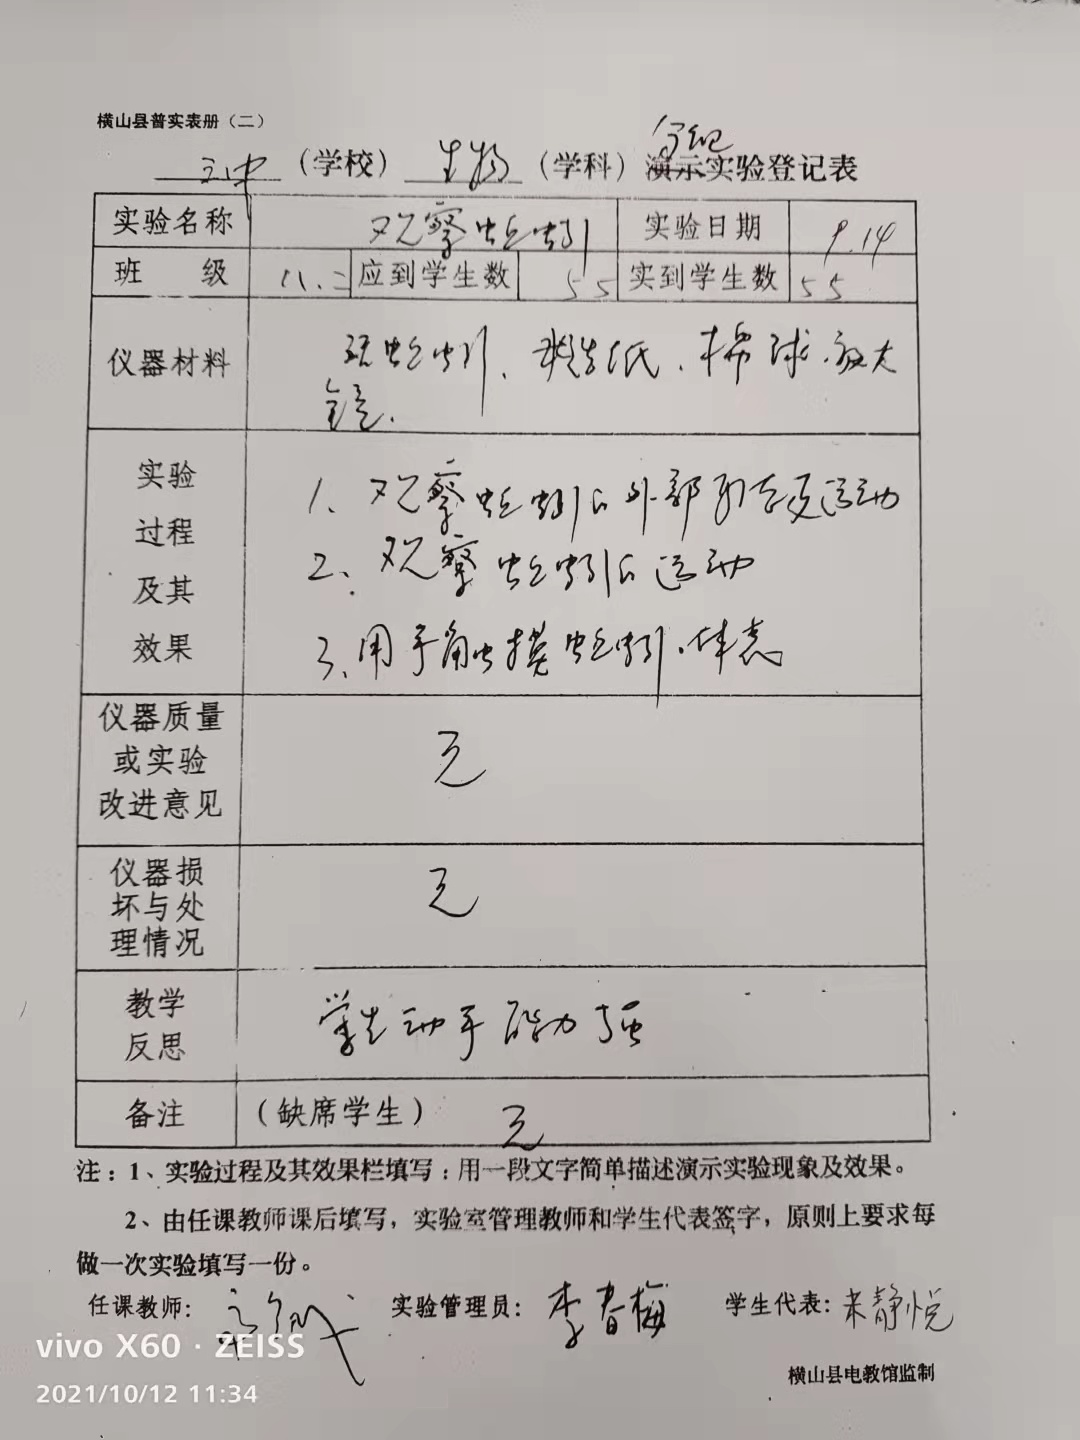 横山县普实表册（二）
三中（学校） 生物（学科）演示实验登记表
分组
实验名称 观察蚯蚓 实验日期 9.14
班 级 八.二 应到学生数 55 实到学生数 55
仪器材料 活蚯蚓、糙纸、棉球、放大
镜.
实验
过程
及其
效果
1、观察蚯蚓的外部形态及运动
2、观察蚯蚓的运动
3、用手触摸蚯蚓.体表
仪器质量
或实验
改进意见
无
仪器损
坏与处
理情况
无
教学
反思
学生动手能力强
备注 （缺席学生） 无
注：1、实验过程及其效果栏填写：用一段文字简单描述演示实验现象及效果。
2、由任课教师课后填写，实验室管理教师和学生代表签字，原则上要求每
做一次实验填写一份。
任课教师： 实验管理员：李春梅 学生代表：朱静悦
横山县电教馆监制
vivo X60 · ZEISS
2021/10/12 11:34